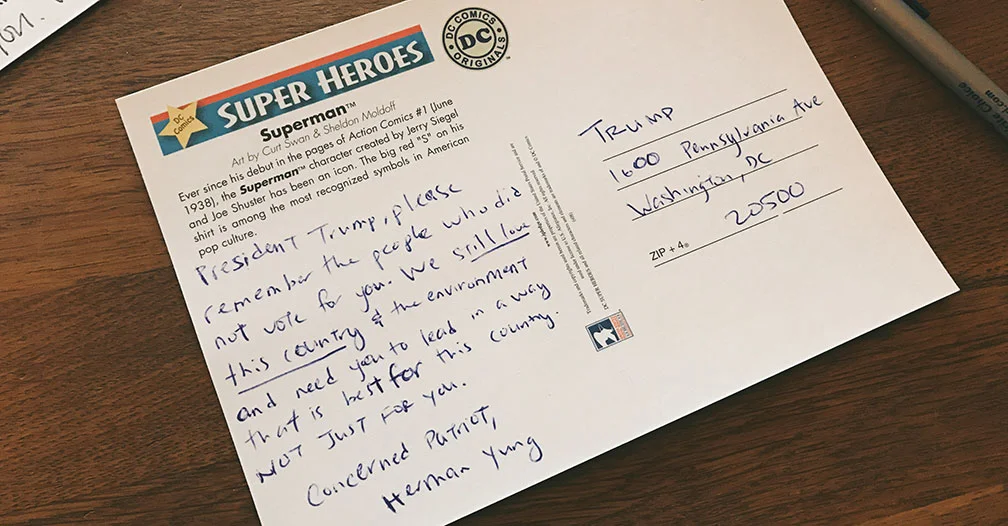 you.
DC
Comics
SUPER HEROES
DC COMICS
DC
ORIGINALS
Superman™
Art by Curt Swan & Sheldon Moldoff
Ever since his debut in the pages of Action Comics #1 (June
1938), the Superman™ character created by Jerry Siegel
and Joe Shuster has been an icon. The big red "S" on his
shirt is among the most recognized symbols in American
pop culture.
President Trump, please
remember the people who did
not vote for you. We still love
this country & the environment
and need you to lead in a way
that is best for this country.
NOT JUST FOR YOU.
Concerned Patriot,
Herman Yung
TRUMP
1600 Pennsylvania Ave
Washington, DC
20500
ZIP + 4®